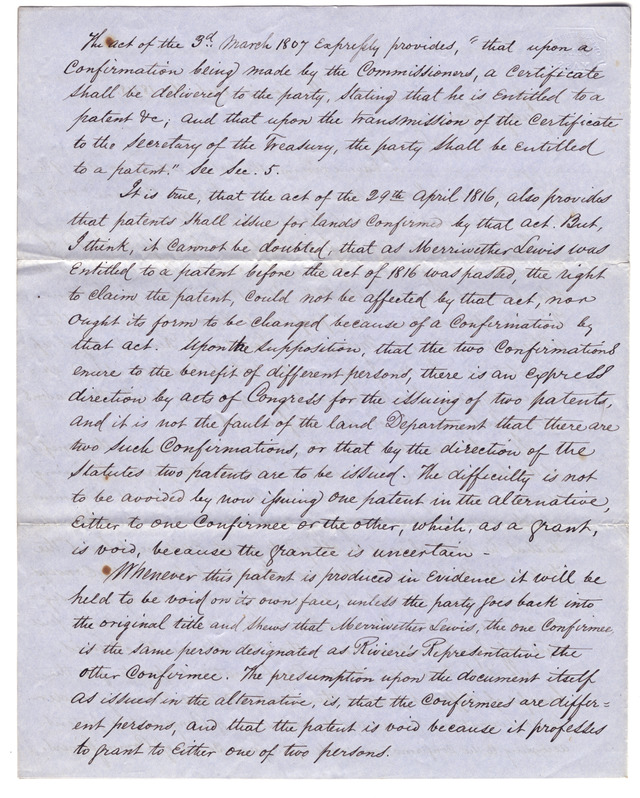 The act of the 3d March 1807 Expressly provides, "that upon a
Confirmation being made by the Commissioners, a Certificate
shall be delivered to the party, Stating that he is Entitled to a
patent &c; and that upon the transmission of the Certificate
to the Secretary of the Treasury, the party shall be Entitled
to a patent." See Sec. 5.
It is true, that the act of the 29th April 1816, also provides
that patents shall issue for lands Confirmed by that act. But,
I think, it Cannot be doubted, that as Merriwether Lewis was
Entitled to a patent before the act of 1816 was passed, the right
to claim the patent, Could not be affected by that act, nor
ought its form to be Changed because of a Confirmation by
that act. Upon the Supposition, that the two Confirmations
enure to the benefit of different persons, there is an express
direction by acts of Congress for the issuing of two patents,
and it is not the fault of the land Department that there are
two such Confirmations, or that by the direction of the
Statutes two patents are to be issued. The difficulty is not
to be avoided by now issuing one patent in the alternative,
Either to one Confirmee or the other, which, as a grant,
is void, because the grantee is uncertain -
Whenever this patent is produced in Evidence it will be
held to be void on its own face, unless the party goes back into
the original title and shews that Merriwether Lewis, the one Confirmee,
is the same person designated as Riviere's Representative the
other Confirmee. The presumption upon the document itself
as issued in the alternative, is, that the Confirmees are differ=
ent persons, and that the patent is void because it professes
to grant to Either one of two persons.